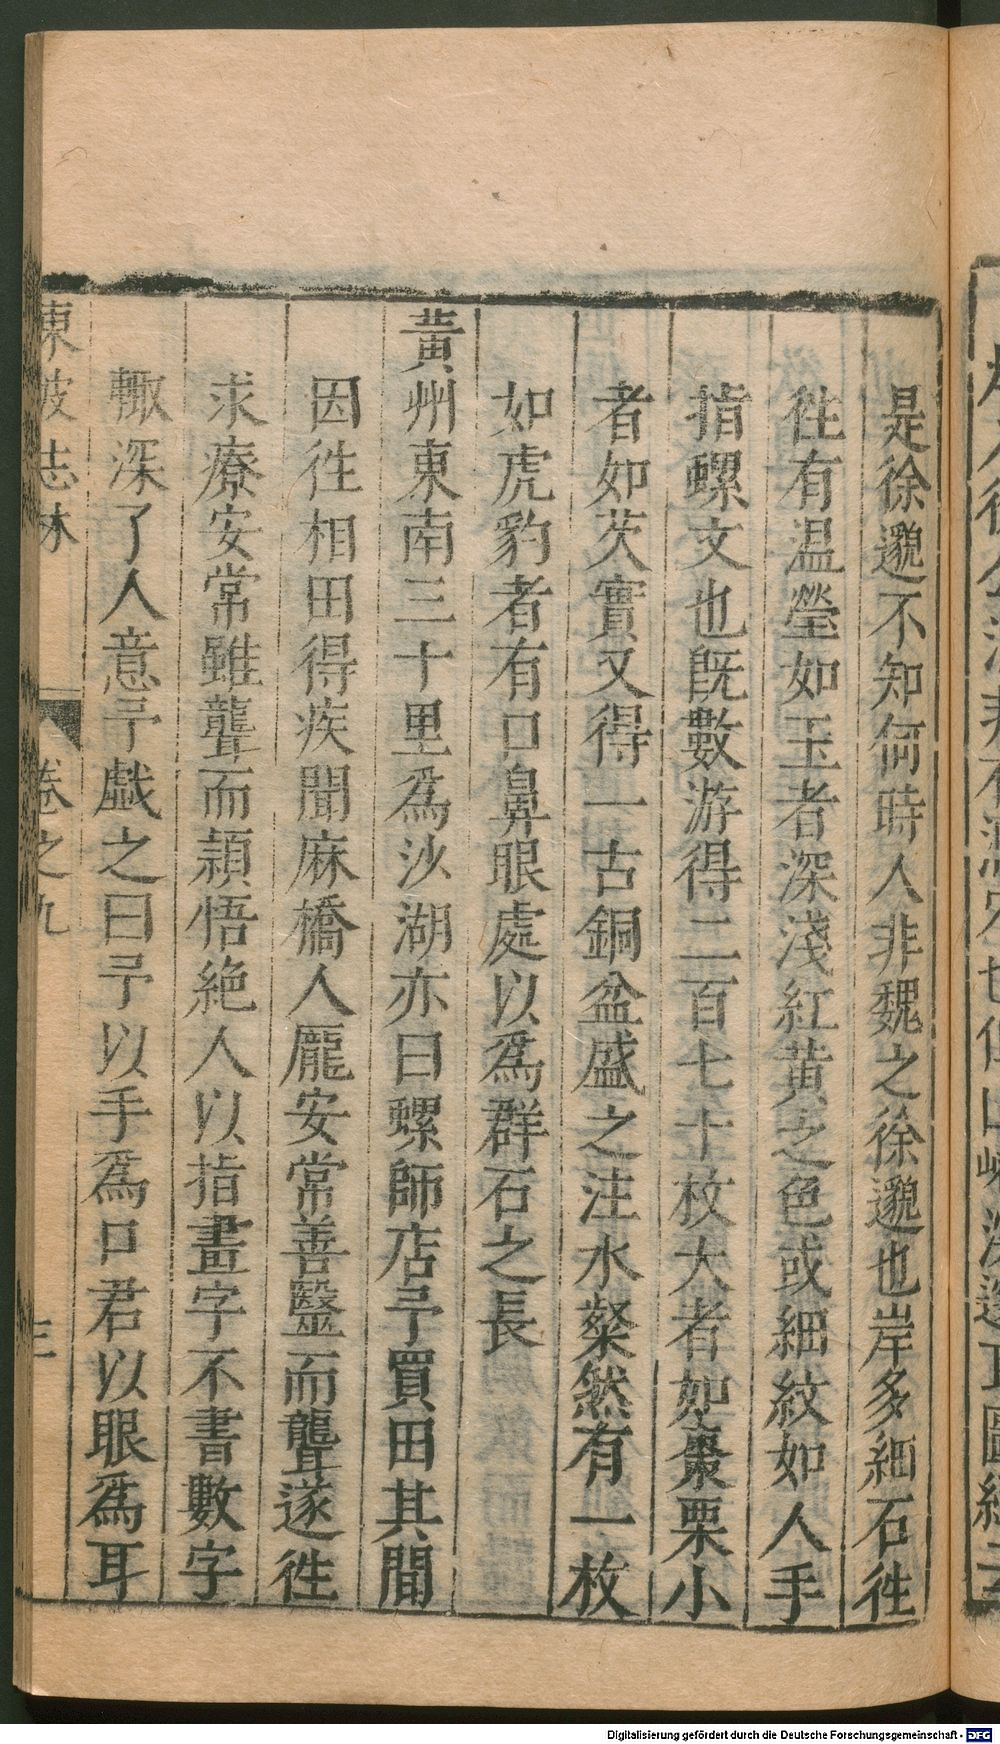 是徐邈不知何時人非魏之徐邈也岸多細石徃
徃有温瑩如玉者深淺紅黄之色或細紋如人手
指螺文也既數游得二百七十枚大者如棗栗小
者如芡實又得一古銅盆盛之注水粲然有一枚
如虎豹者有口鼻眼處以爲群石之長
黄州東南三十里爲沙湖亦曰螺師店予買田其間
因徃相田得疾聞麻橋人龐安常善醫而聾遂徃
求療安常雖聾而穎悟絶人以指畫字不書數字
輙深了人意予戱之曰予以手爲口君以眼爲耳
東坡志林
卷之九
三
Digitalisierung gefördert durch die Deutsche Forschungsgemeinschaft - DFG